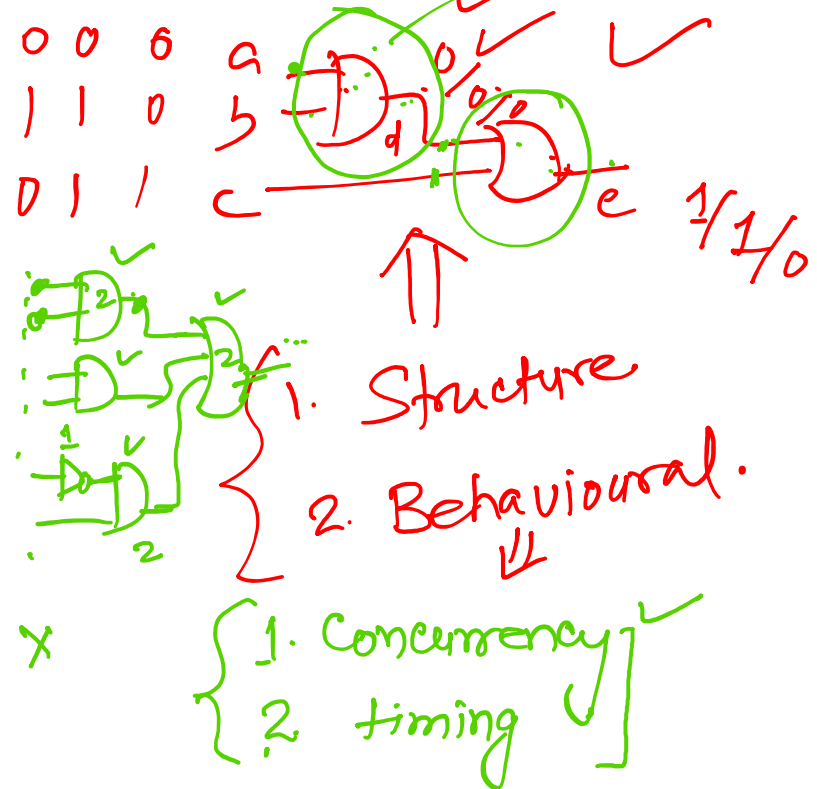 0 0 0 a 0
1 1 0 b d 0/0
0 1 1 c e 1/1/0
2
2
1. Structure
1
2. Behavioural.
2
X
1. Concurrency
2. timing